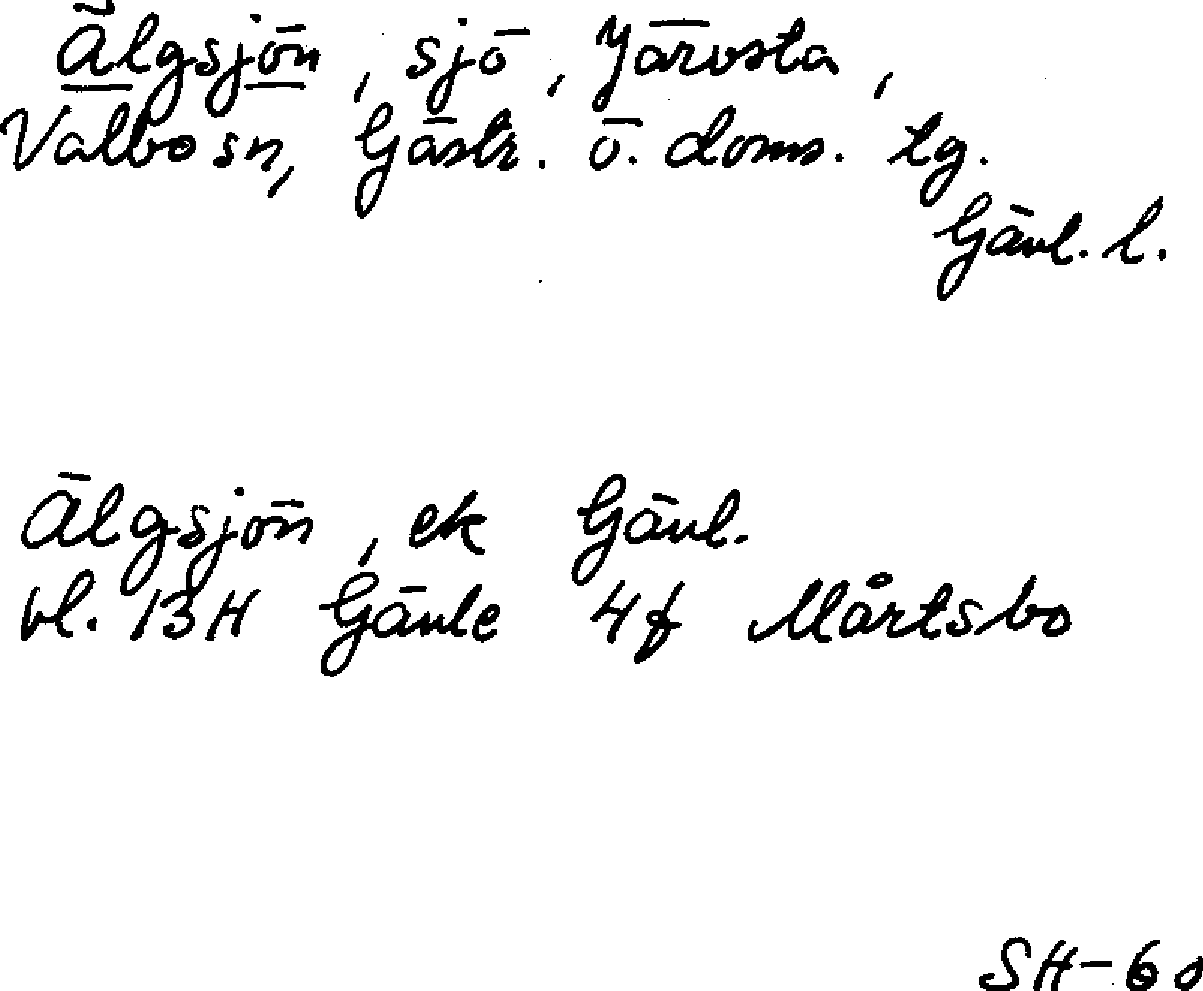 Älgsjön, sjö, Järvsta,
Valbo sn, Gästr. ö. doms. tg.
Gävl. l.
Älgsjön, ek Gävl.
bl. 13H Gävle 4f Mårtsbo
SH-60